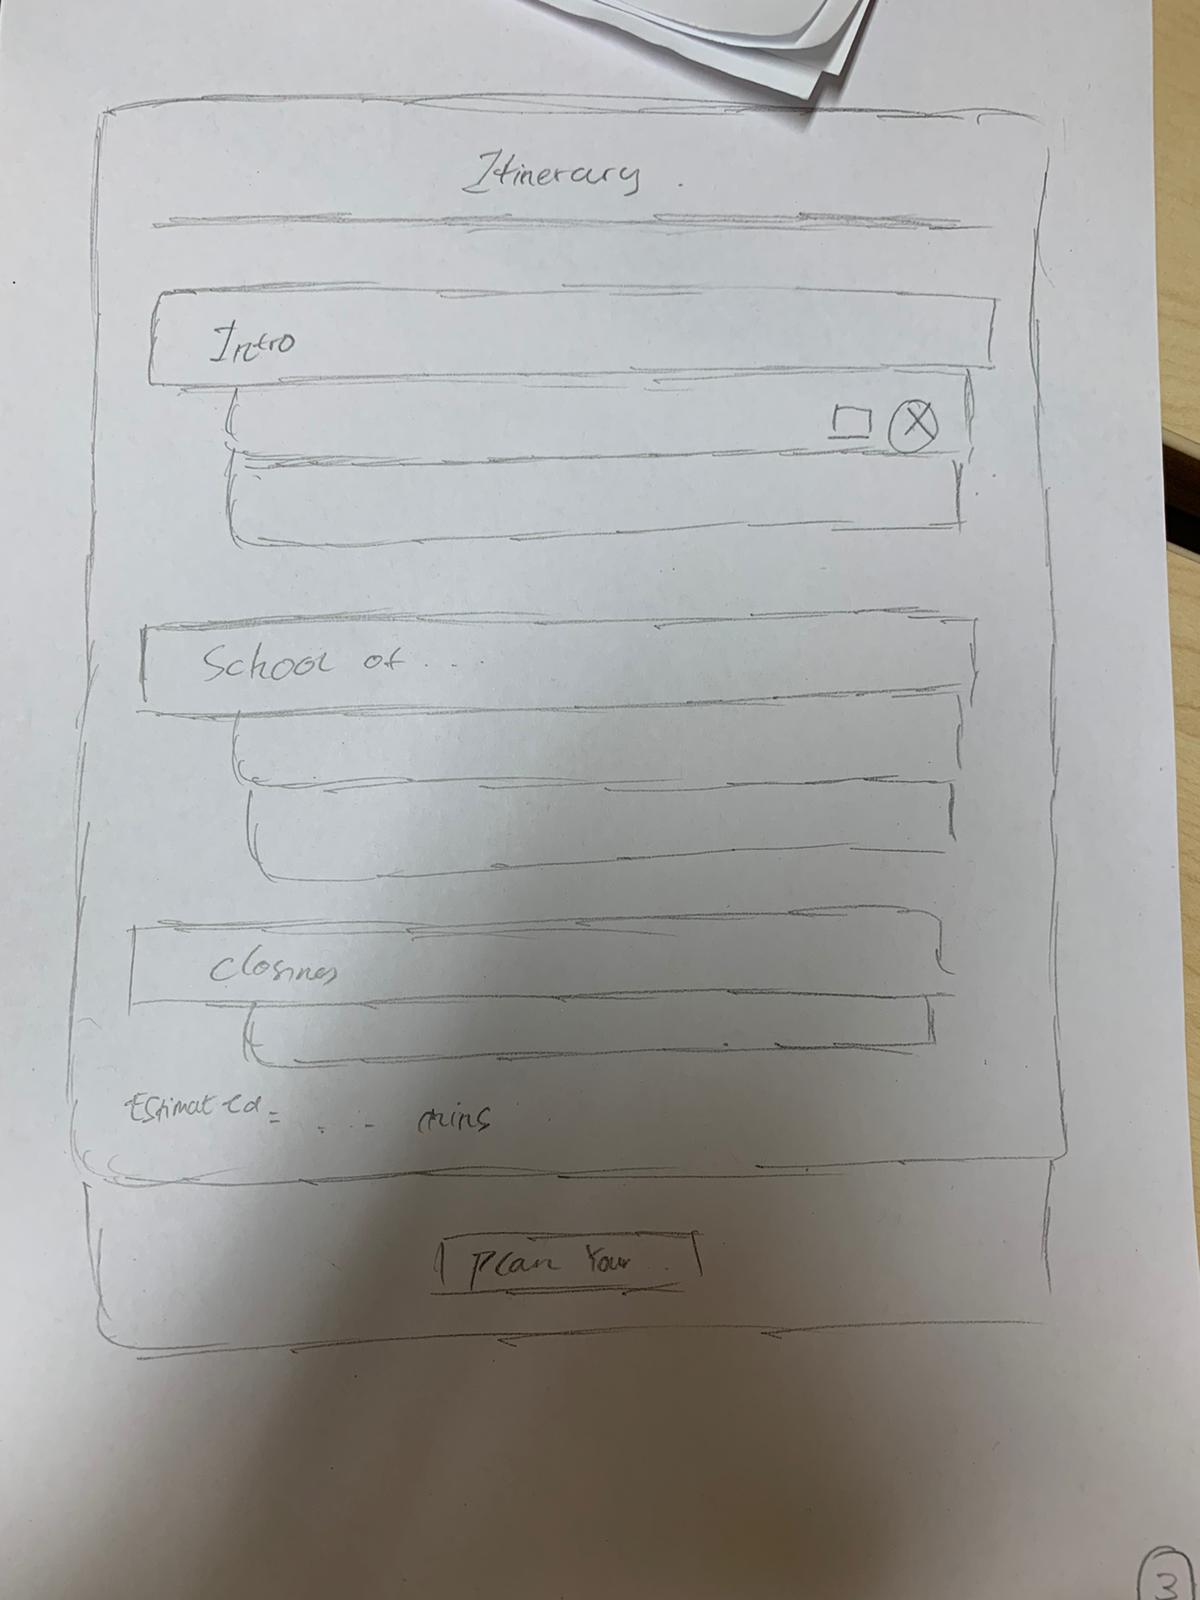 Itinerary
Intro
School of ...
Closing
Estimated = ... mins
Plan Your
3